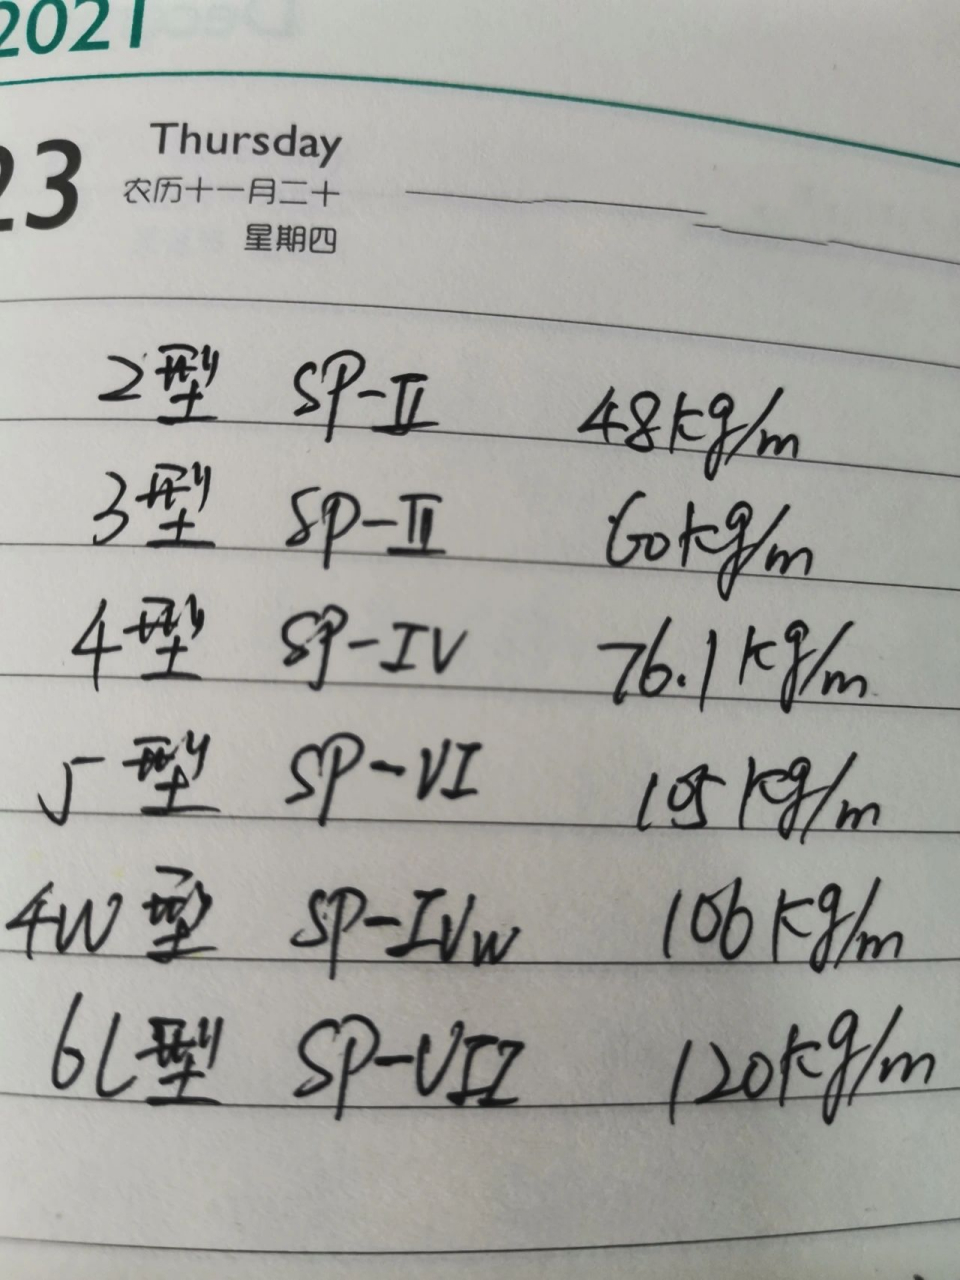 2021
23 Thursday
农历十一月二十
星期四
2型 SP-Ⅱ 48kg/m
3型 SP-Ⅲ 60kg/m
4型 SP-IV 76.1kg/m
5型 SP-VI 105kg/m
4W型 SP-IVw 106kg/m
6L型 SP-VII 120kg/m